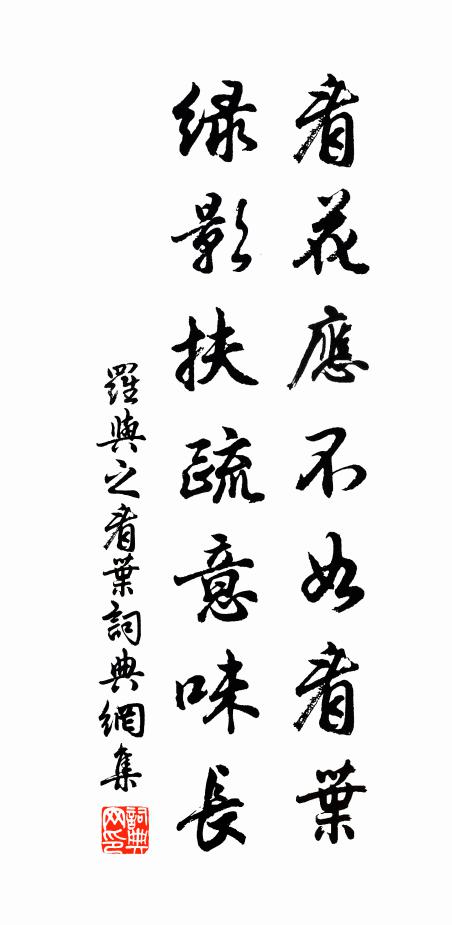 看花應不如看葉
綠影扶疏意味長
羅與之看葉詞典網集
詞典網印